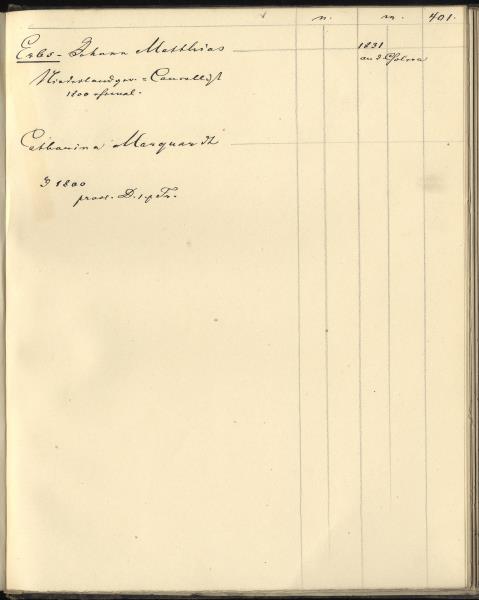 n. m. 401.
Erbs - Johann Matthias
1831
an d Cholera
Niederlandger. = Cancellist
1800
Catharina Marquardt
1800
procl. D. 1. p Tr.